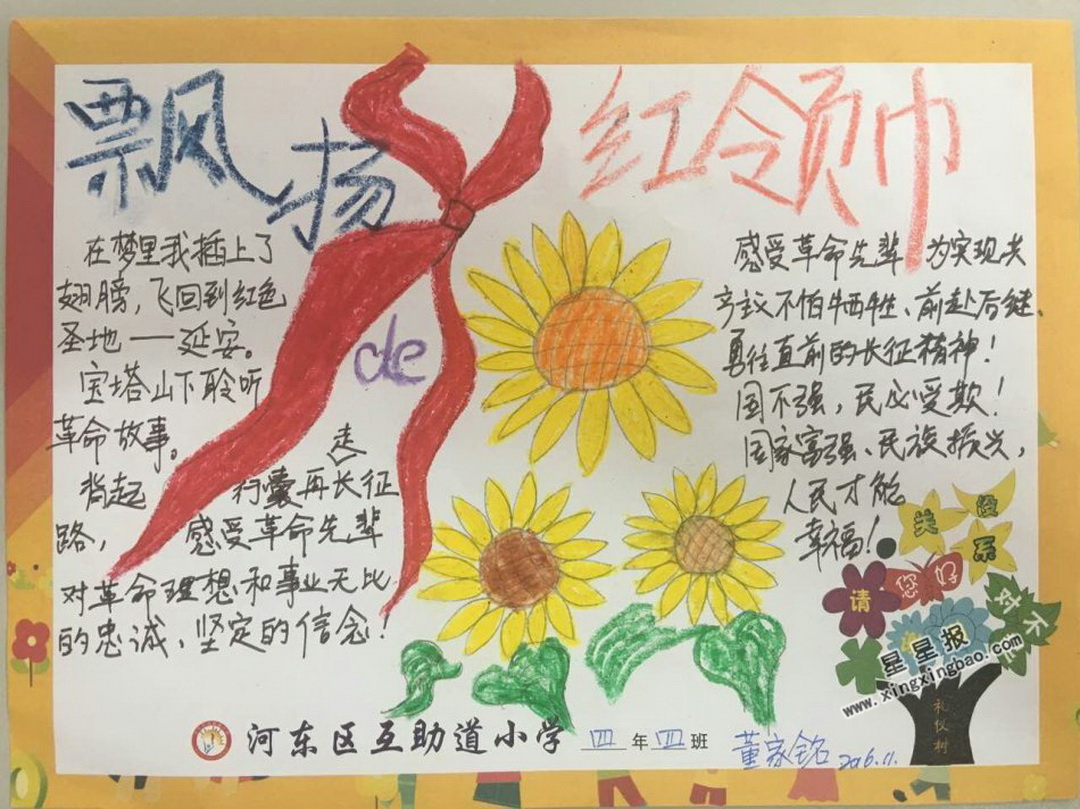 飘扬
de
红领巾
在梦里我插上了
翅膀，飞回到红色
圣地——延安。
宝塔山下聆听
革命故事。
背起 行囊再走长征
路， 感受革命先辈
对革命理想和事业无比
的忠诚、坚定的信念！
感受革命先辈 为实现共
产主义不怕牺牲、前赴后继、
勇往直前的长征精神！
国不强，民必受欺！
国家富强、民族振兴，
人民才能
幸福！
没
关
系
您好
请
对不
星星报
www.xingxingbao.com
礼仪树
河东区互助道小学 四 年 四 班 董家铭 2016.11.